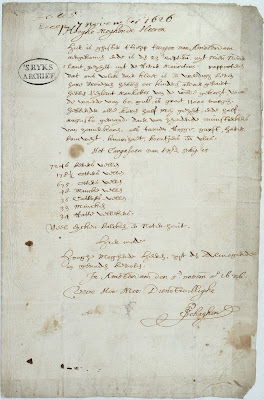 Recep. 7 November 1626
SRYKS
ARCHIEF
Hooghe Moghende Heeren
Hier is ghister t'schip t'wapen van Amsterdam
aengekomen ende is den 23 septem. uyt Nieu Neder
lant gezeylt uyt de Rivier Mauritius. rapporteren
dat ons volck daer kloec is en vreedigh leven
hare Vrouwen hebben ooc kinders aldaer gebaert
hebben t'eylant Manhattes van de wilde gekocht, voor
de waerde van 60 guld. is groot 11000 morgen.
hebbende alle koren half mey gezeyt, ende half
augusto gemayt. daer van zeynden munsterkens
van zomerkoren, als tarwe, Rogge, garst, haver,
boucweyt, knarizaet, boontjens en vlas.
Het Cargasoen van tsz schip is
7246 Bevers vellen
178½ Otters vellen
675 Otters vellen
48 Mincke vellen
36 Catloes vellen
33 Mincken
34 Ratte vellekens
Veele eycken Balcken, en Noten hout.
Hier mede
Hooghe Moghende Heeren, zyt de Almogende
in genade bevolen
In Amsterdam den 5 novem ao 1626
Uwe Hoo: Moo: Dienstwillighe
P Schaghen